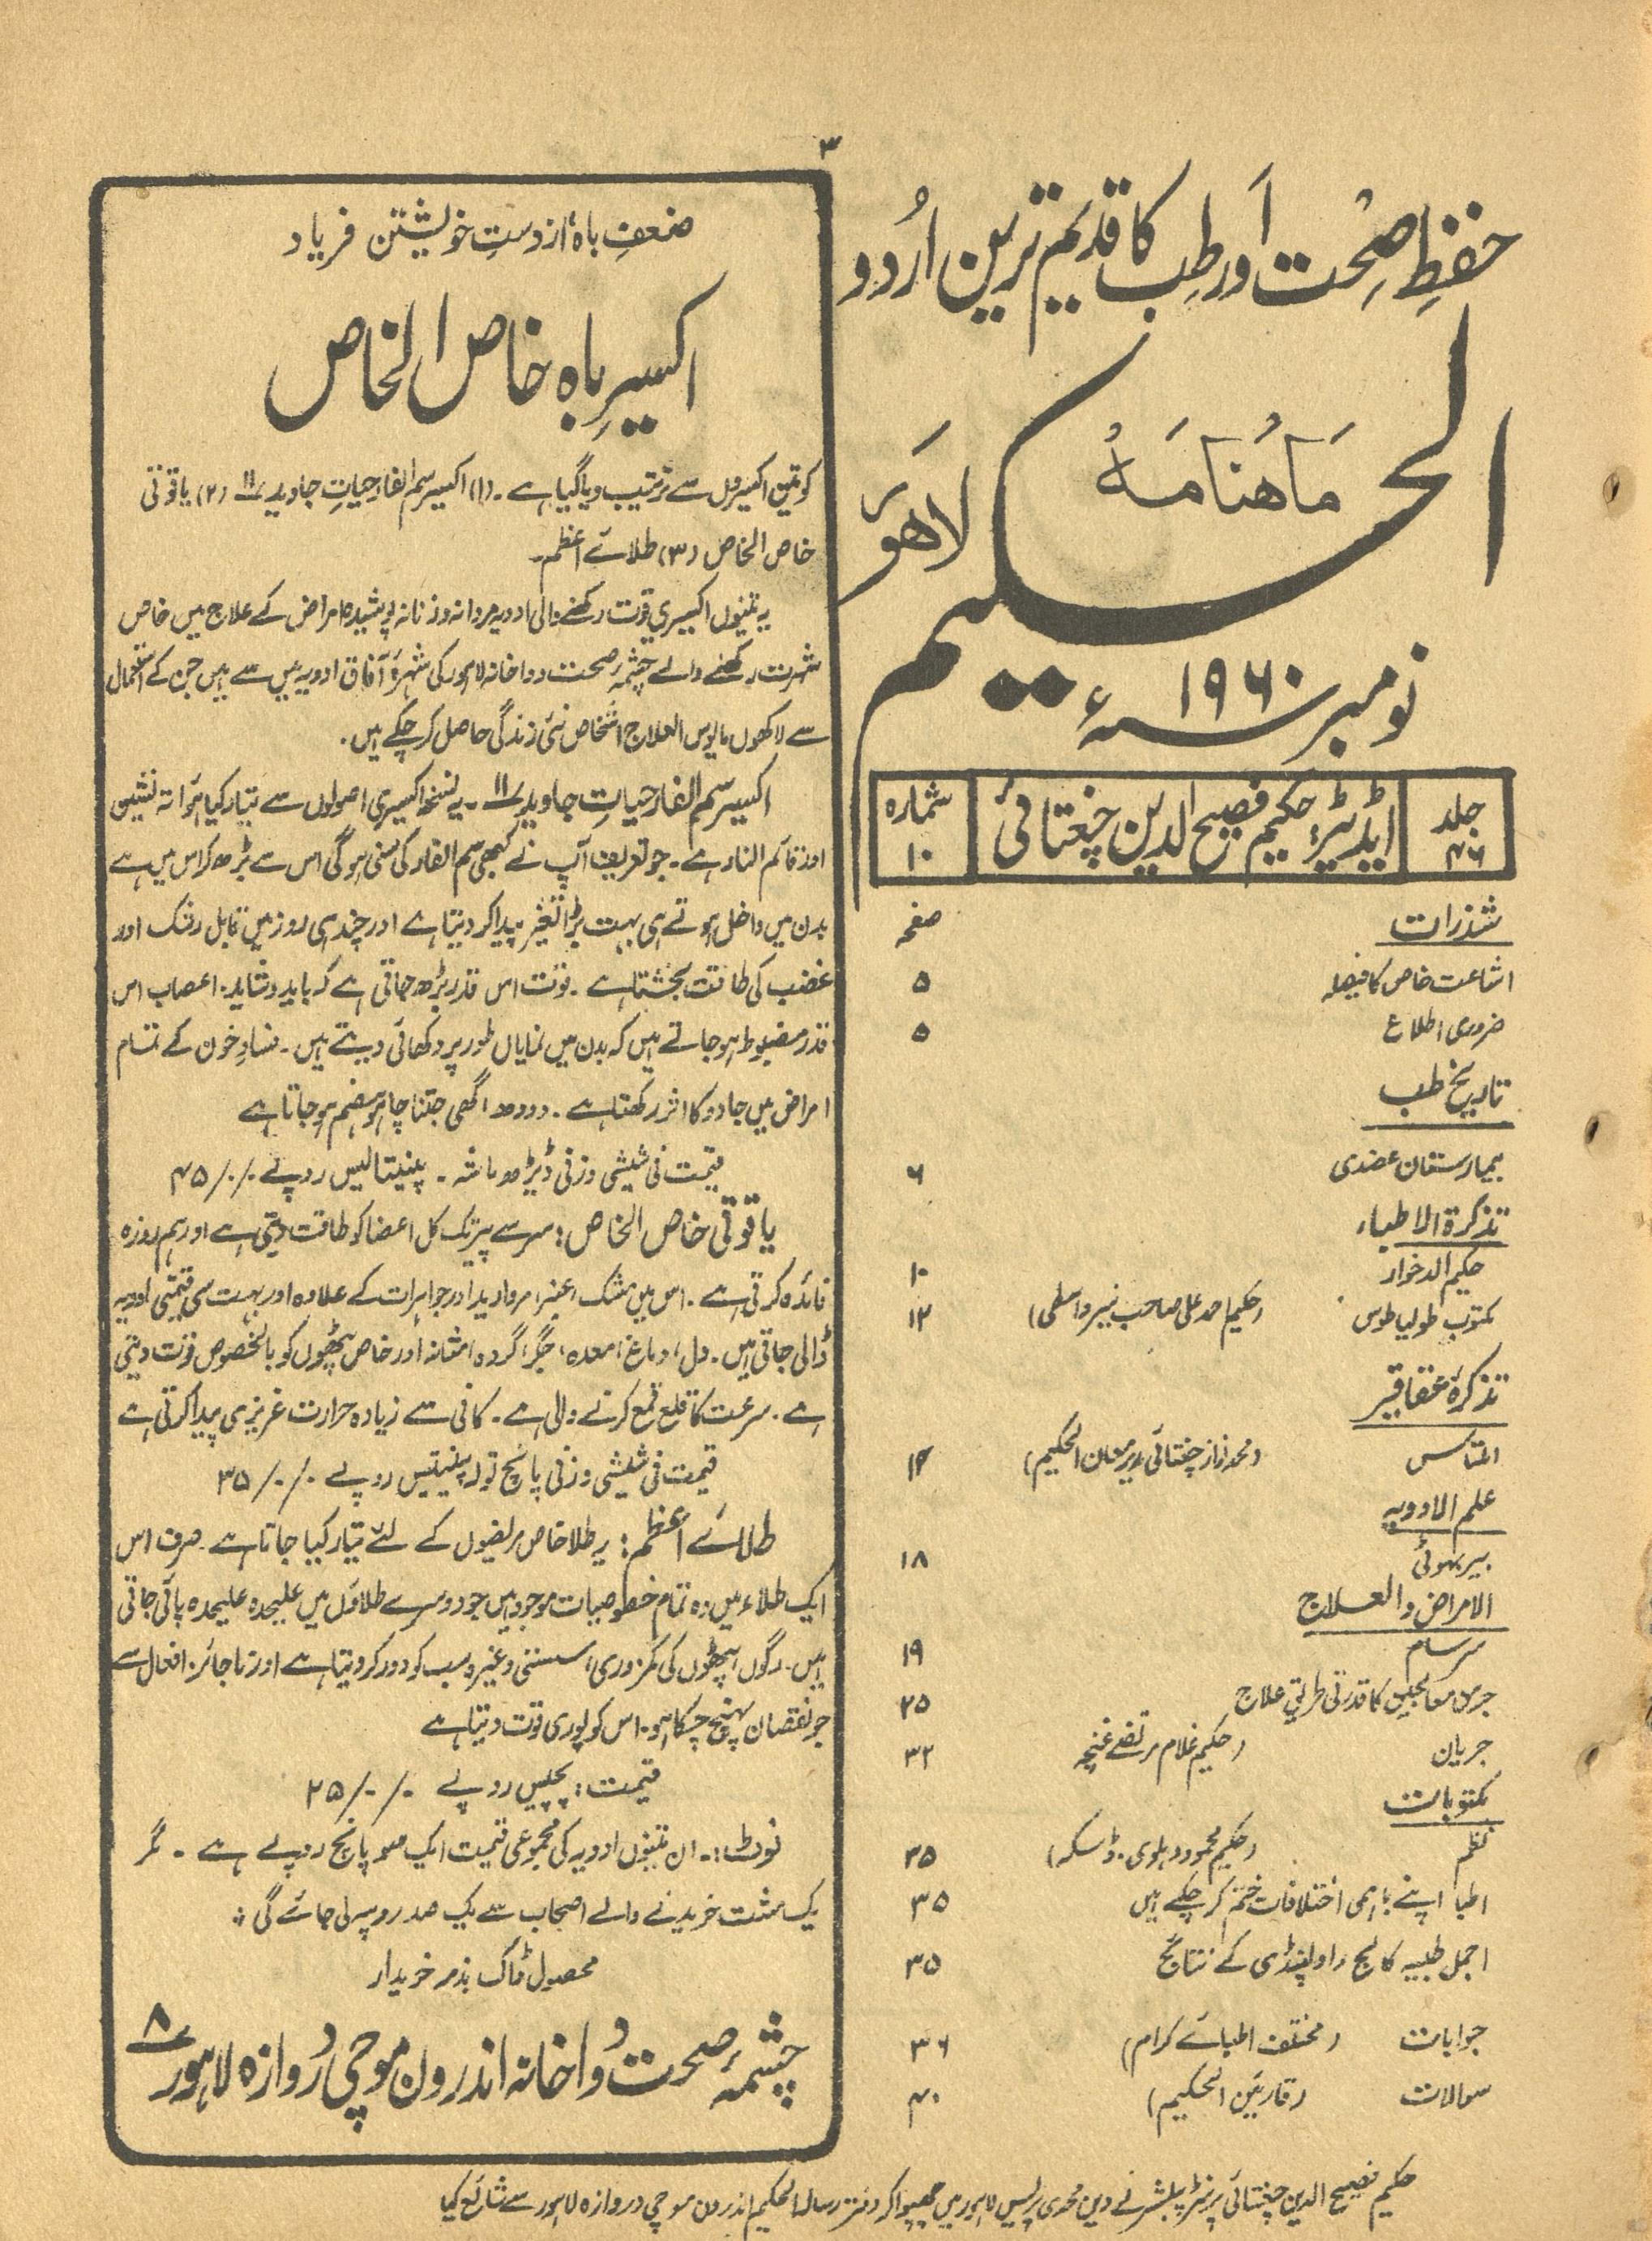 ۳
حفظِ صحت اور طِب کا قدیم ترین اُردو
ماهنامہ
الحکیم
لاهور
نومبر ۱۹۶۰ء
جلد ۴۶
ایڈیٹر: حکیم فصیح الدین چغتائی
شمارہ ۱۰
شذرات صفحہ
اشاعت خاص کا فیصلہ ۵
ضروری اطلاع ۵
تاریخ طب
بیمارستان عضدی ۶
تذکرۃ الاطباء
حکیم الدخوار ۱۰
مکتوب طولیا طوس (حکیم احمد علی صاحب نیر واسطی) ۱۲
تذکرۂ عقاقیر
املتاس (محمد نواز چغتائی مدیر معاون الحکیم) ۱۴
علم الادویہ
بیر بہوٹی ۱۸
الامراض والعلاج
سرسام ۱۹
جرمن معالجین کا قدرتی طریقِ علاج ۲۵
جریان (حکیم غلام مرتضے غنچہ ۳۲
مکتوبات
نظم (حکیم محمود دہلوی۔ ڈسکہ) ۳۵
اطبا اپنے باہمی اختلافات ختم کر چکے ہیں ۳۵
اجمل طبیہ کالج راولپنڈی کے نتائج ۳۵
جوابات (مختلف اطبائے کرام) ۳۶
سوالات (قارئین الحکیم) ۴۰
ضعفِ باہ از دستِ خویشتن فریاد
اکسیرِ باہ خاص الخاص
کو تین اکسیروں سے ترتیب دیا گیا ہے۔ (۱) اکسیر سم الفار حیاتِ جاوید ۱۱ (۲) یاقوتی
خاص الخاص (۳) طلائے اعظم۔
یہ تینوں اکسیری قوت رکھنے والی ادویہ مردانہ و زنانہ پوشیدہ امراض کے علاج میں خاص
شہرت رکھنے والے چشمۂ صحت دواخانہ لاہور کی شہرۂ آفاق ادویہ میں سے ہیں جن کے استعمال
سے لاکھوں مایوس العلاج اشخاص نئی زندگی حاصل کر چکے ہیں۔
اکسیر سم الفار حیاتِ جاوید ۱۱۔ یہ نسخہ اکسیری اصولوں سے تیار کیا ہوا تہ نشین
اور قائم النار ہے۔ جو تعریف آپ نے کبھی سم الفار کی سنی ہو گی اس سے بڑھ کر اس میں ہے
بدن میں داخل ہوتے ہی بہت بڑا تغیّر پیدا کر دیتا ہے اور چند ہی روز میں قابل رشک اور
غضب کی طاقت بخشتا ہے۔ قوت اس قدر بڑھ جاتی ہے کہ باید و شاید۔ اعصاب اس
قدر مضبوط ہو جاتے ہیں کہ بدن میں نمایاں طور پر دکھائی دیتے ہیں۔ فسادِ خون کے تمام
امراض میں جادو کا اثر رکھتا ہے۔ دودھ، گھی جتنا چاہو ہضم ہو جاتا ہے
قیمت فی شیشی وزنی ڈیڑھ ماشہ۔ پینتالیس روپے ۴۵/۰/۰
یاقوتی خاص الخاص: سر سے پیر تک کل اعضا کو طاقت دیتی ہے اور ہم روزہ
فائدہ کرتی ہے۔ اس میں مشک، عنبر، مروارید اور جواہرات کے علاوہ اور بہت سی قیمتی ادویہ
ڈالی جاتی ہیں۔ دل، دماغ، معدہ، جگر، گردہ، مثانہ اور خاص پٹھوں کو بالخصوص قوت دیتی
ہے۔ سرعت کا قلع قمع کرنے والی ہے۔ کافی سے زیادہ حرارت غریزی پیدا کرتی ہے
قیمت فی شیشی وزنی پانچ تولہ پینتیس روپے ۳۵/۰/۰
طلائے اعظم: یہ طلا خاص مریضوں کے لئے تیار کیا جاتا ہے۔ صرف اس
ایک طلاء میں وہ تمام خصوصیات موجود ہیں جو دوسرے طلاؤں میں علیحدہ علیحدہ پائی جاتی
ہیں۔ رگوں، پٹھوں کی کمزوری، سستی وغیرہ سب کو دور کر دیتا ہے اور ناجائز افعال سے
جو نقصان پہنچ چکا ہو۔ اس کو پوری قوت دیتا ہے
قیمت: پچیس روپے ۲۵/۰/۰
نوٹ:۔ ان تینوں ادویہ کی مجموعی قیمت ایک سو پانچ روپے ہے۔ مگر
یک مشت خریدنے والے اصحاب سے یک صد روپے لی جائے گی
محصول ڈاک بذمہ خریدار
چشمۂ صحت دواخانہ اندرون موچی دروازہ لاہور ۸
حکیم فصیح الدین چغتائی پرنٹر پبلشر نے دین محمدی پریس لاہور میں چھپوا کر دفتر رسالہ الحکیم اندرون موچی دروازہ لاہور سے شائع کیا